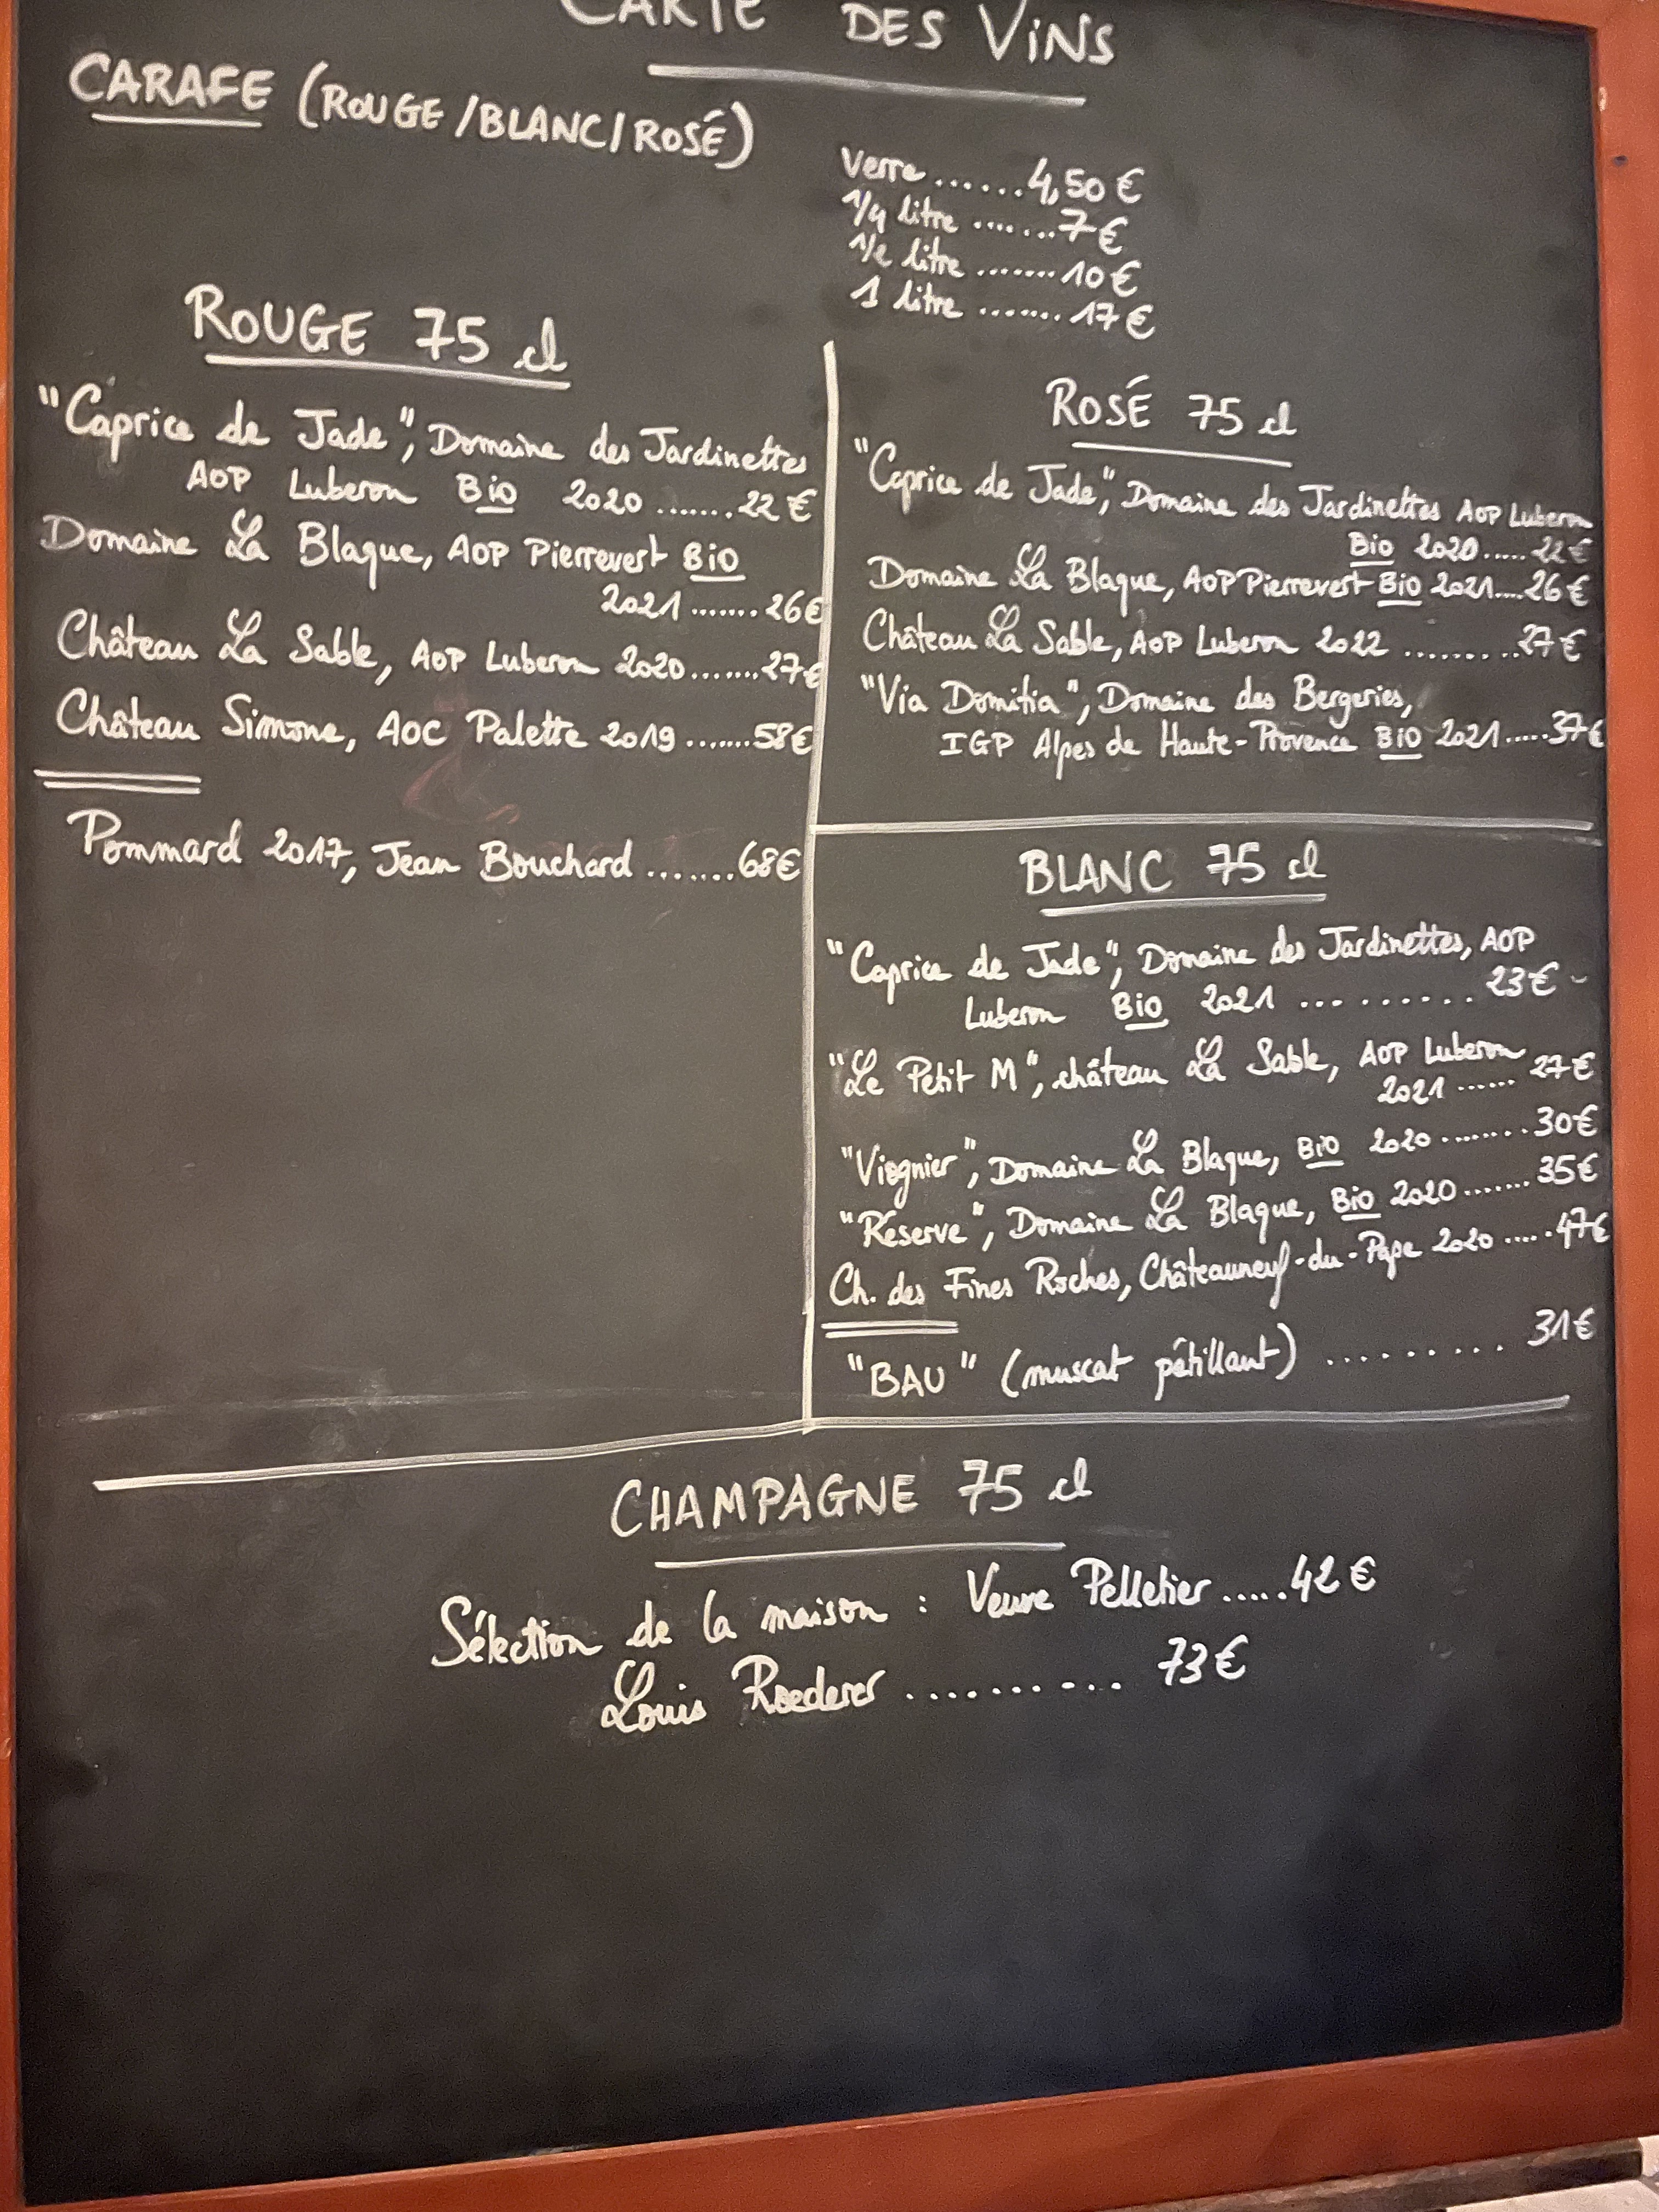 CARTE DES VINS
CARAFE (ROUGE/BLANC/ROSÉ)
Verre ...... 4,50 €
1/4 litre ....... 7 €
1/2 litre ....... 10 €
1 litre ....... 17 €
ROUGE 75 cl
"Caprice de Jade", Domaine des Jardinettes
AOP Luberon Bio 2020 ....... 22 €
Domaine La Blaque, AOP Pierrevert Bio
2021 ....... 26 €
Château La Sable, AOP Luberon 2020 ....... 27 €
Château Simone, AOC Palette 2019 ....... 58 €
Pommard 2017, Jean Bouchard ....... 68 €
ROSÉ 75 cl
"Caprice de Jade", Domaine des Jardinettes AOP Luberon
Bio 2020 ..... 22 €
Domaine La Blaque, AOP Pierrevert Bio 2021 .... 26 €
Château La Sable, AOP Luberon 2022 ......... 27 €
"Via Domitia", Domaine des Bergeries,
IGP Alpes de Haute-Provence BIO 2021 ..... 37 €
BLANC 75 cl
"Caprice de Jade", Domaine des Jardinettes, AOP
Luberon Bio 2021 .......... 23 € -
"Le Petit M", château La Sable, AOP Luberon
2021 ...... 27 €
"Viognier", Domaine La Blaque, Bio 2020 ........ 30 €
"Réserve", Domaine La Blaque, Bio 2020 ....... 35 €
Ch. des Fines Roches, Châteauneuf-du-Pape 2020 ..... 47 €
"BAU" (muscat pétillant) ......... 31 €
CHAMPAGNE 75 cl
Sélection de la maison : Veuve Pelletier ..... 42 €
Louis Roederer .......... 73 €